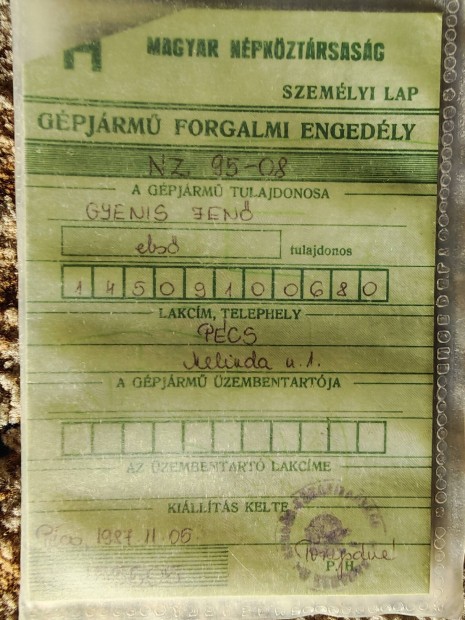 H
MAGYAR NÉPKÖZTÁRSASÁG
SZEMÉLYI LAP
GÉPJÁRMŰ FORGALMI ENGEDÉLY
NZ 95-08
A GÉPJÁRMŰ TULAJDONOSA
GYENIS JENŐ
első tulajdonos
14509100680
LAKCÍM, TELEPHELY
PÉCS
Melinda u. 1.
A GÉPJÁRMŰ ÜZEMBENTARTÓJA
AZ ÜZEMBENTARTÓ LAKCÍME
KIÁLLÍTÁS KELTE
Pécs 1987. 11. 05.
P.H.